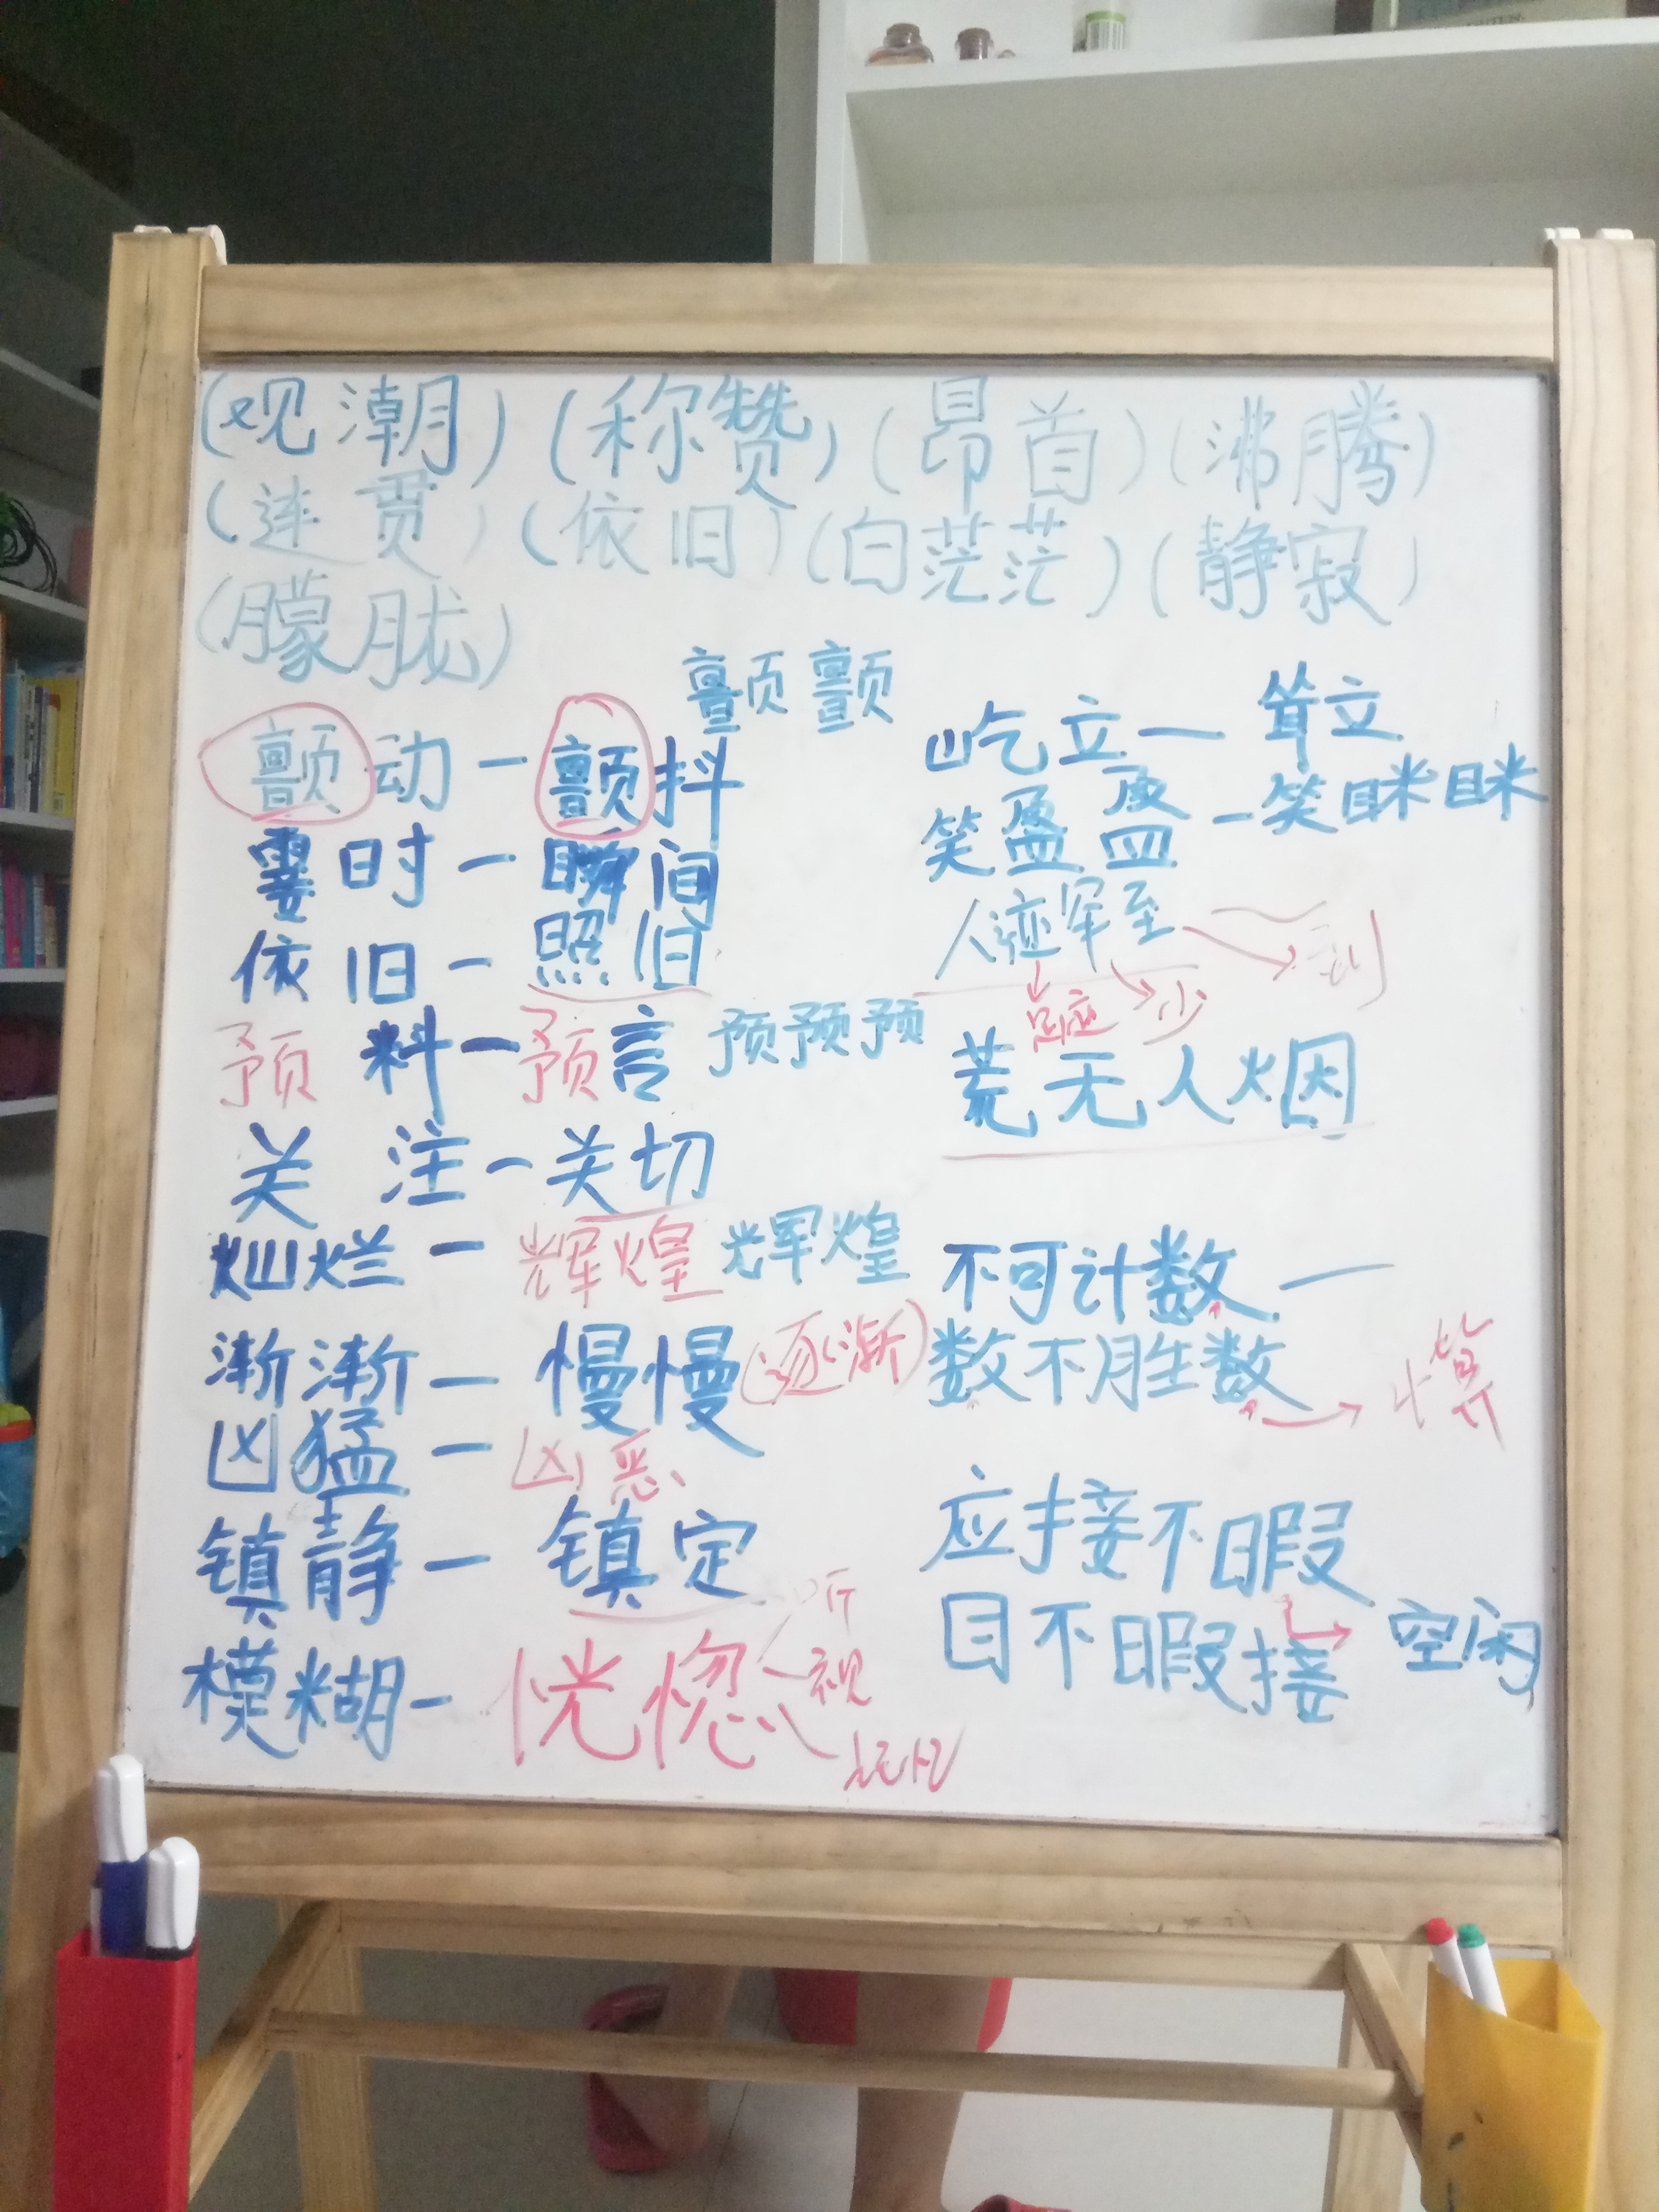 (观潮)(称赞)(昂首)(沸腾)
(连贯)(依旧)(白茫茫)(静寂)
(朦胧)
颤颤
颤动—颤抖
霎时—瞬间
依旧—照旧
预料—预言 预预预
关注—关切
灿烂—辉煌 辉煌
渐渐—慢慢(逐渐)
凶猛—凶恶
镇静—镇定
模糊—恍惚
听
视
记忆
屹立—耸立
笑盈盈—笑眯眯
人迹罕至
足迹 少 到
荒无人烟
不可计数—
数不胜数
算
应接不暇
目不暇接
空闲